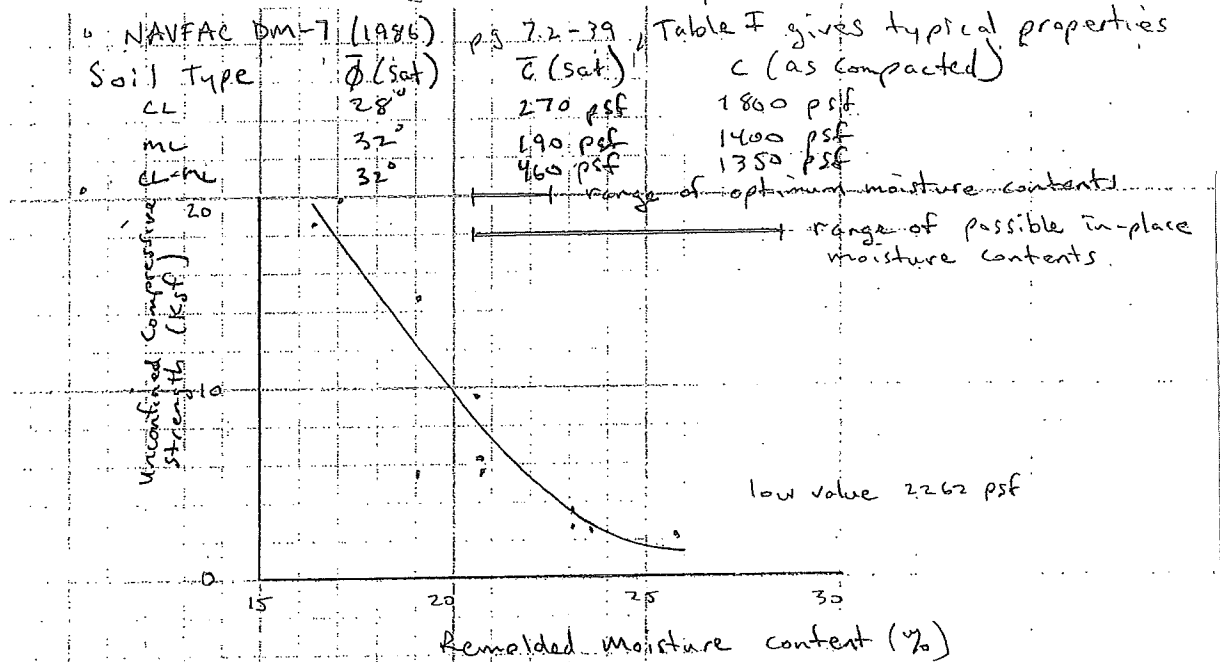 " NAVFAC DM-7 (1986) pg 7.2-39, Table I gives typical properties
Soil Type φ̄ (sat) c̄ (sat) c (as compacted)
CL 28° 270 psf 1800 psf
ML 32° 190 psf 1400 psf
CL-ML 32° 460 psf 1350 psf
range of optimum moisture contents
range of possible in-place
moisture contents.
Unconfined Compressive
strength (Ksf)
20
10
0
low value 2262 psf
15 20 25 30
Remolded Moisture content (%)